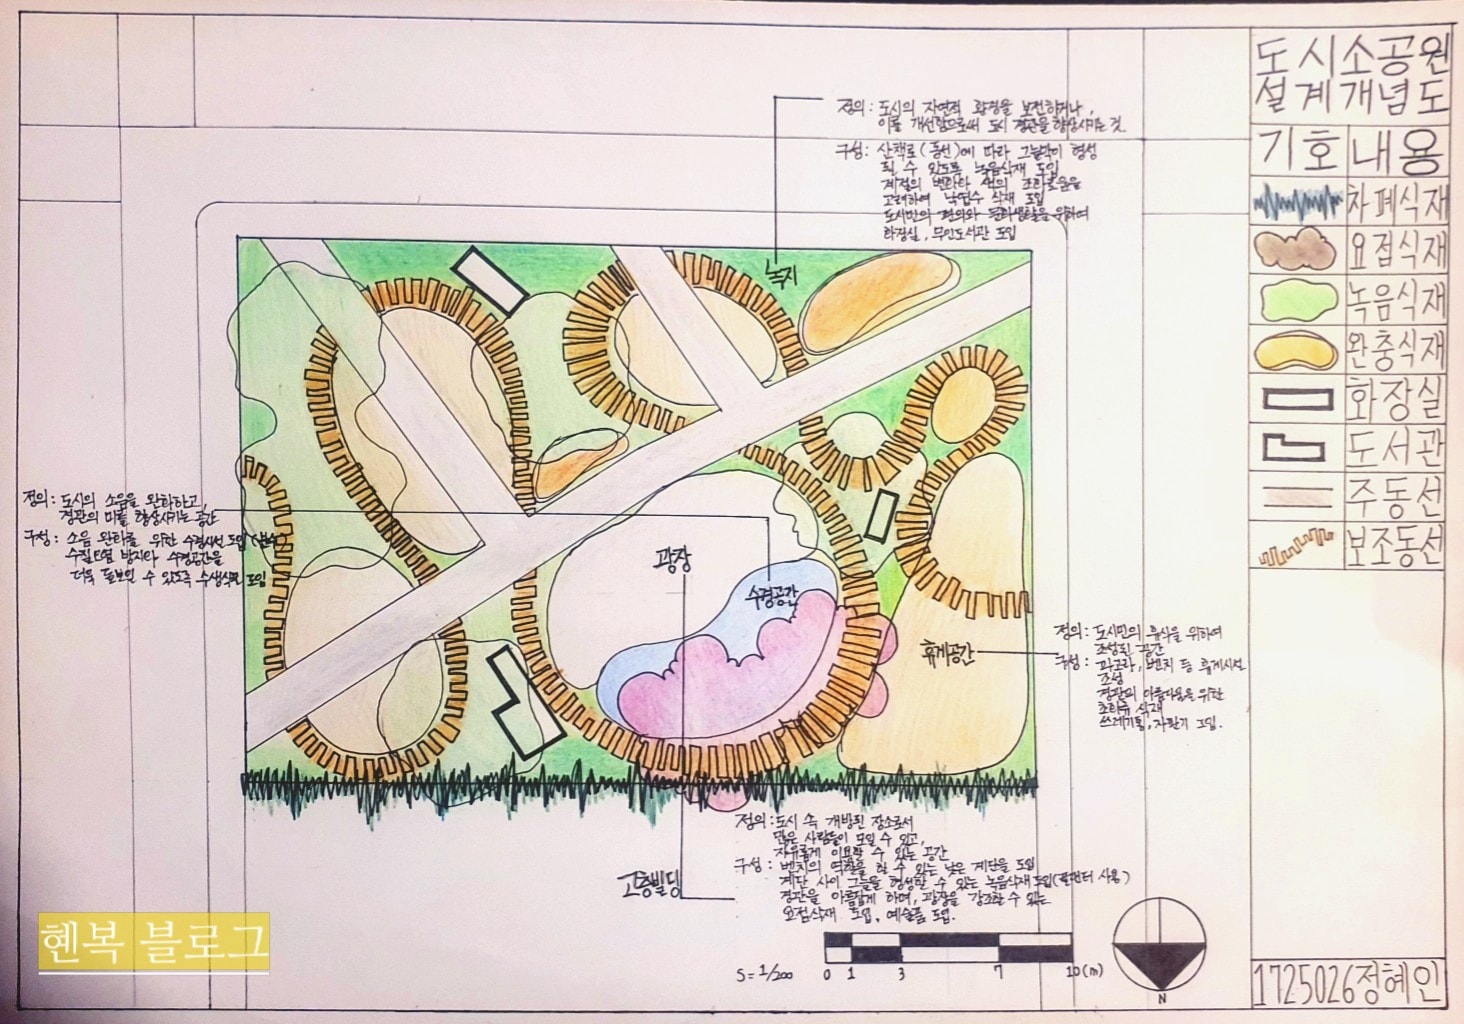 도시소공원
설계개념도
기호 내용
차폐식재
요점식재
녹음식재
완충식재
화장실
도서관
주동선
보조동선
정의: 도시의 자연적 환경을 보전하거나,
이를 개선함으로써 도시 경관을 향상시키는 것.
구성: 산책로(동선)에 따라 그늘막이 형성
될 수 있도록 녹음식재 도입
계절의 변화와 색의 조화로움을
고려하여 낙엽수 식재 도입
도시민의 편의와 문화생활을 위하여
화장실, 무인도서관 도입
녹지
정의: 도시의 소음을 완화하고,
경관의 미를 향상시키는 공간
구성: 소음 완화를 위한 수경시설 도입(분수)
수질오염 방지와 수경공간을
더욱 돋보일 수 있도록 수생식재 도입
광장
수경공간
휴게공간
정의: 도시민의 휴식을 위하여
조성된 공간
구성: 파고라, 벤치 등 휴게시설
조성
경관의 아름다움을 위한
초화류 식재
쓰레기통, 자판기 도입.
정의: 도시 속 개방된 장소로서
많은 사람들이 모일 수 있고,
자유롭게 이용할 수 있는 공간
구성: 벤치의 역할을 할 수 있는 낮은 계단을 도입
계단 사이 그늘을 형성할 수 있는 녹음식재 도입(플랜터 사용)
경관을 아름답게 하며, 광장을 강조할 수 있는
요점식재 도입, 예술품 도입.
고층빌딩
S=1/200 0 1 3 7 10(m)
N
1725026정혜인
헨복 블로그